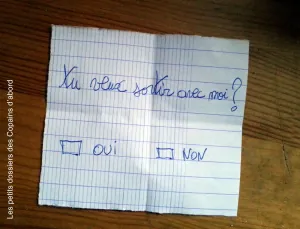 Tu veux sortir avec moi?
OUI NON
Les petits dossiers des Copains d'abord